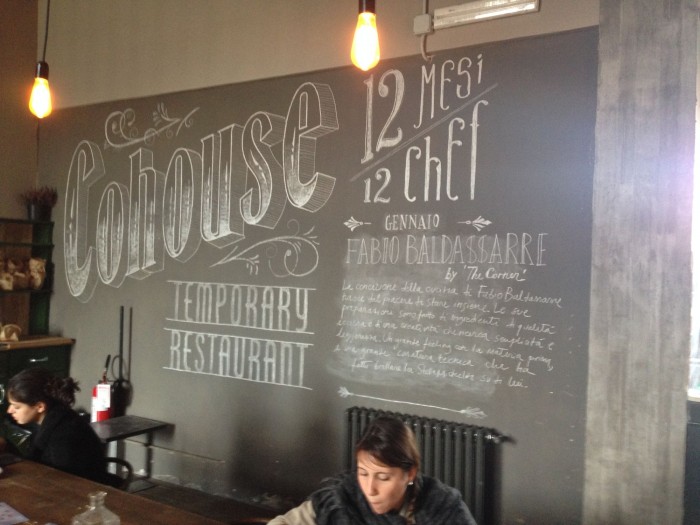 Cohouse
TEMPORARY
RESTAURANT
12 MESI
12 CHEF
GENNAIO
FABIO BALDASSARRE
by "The Corner"
La concezione della cucina di Fabio Baldassarre
nasce dal piacere di stare insieme. Le sue
preparazioni sono fatte di ingredienti di qualità
e di una creatività che
leggerezza. Un grande feeling con la materia prima,
e una grande tecnica che ha
fatto di lui.